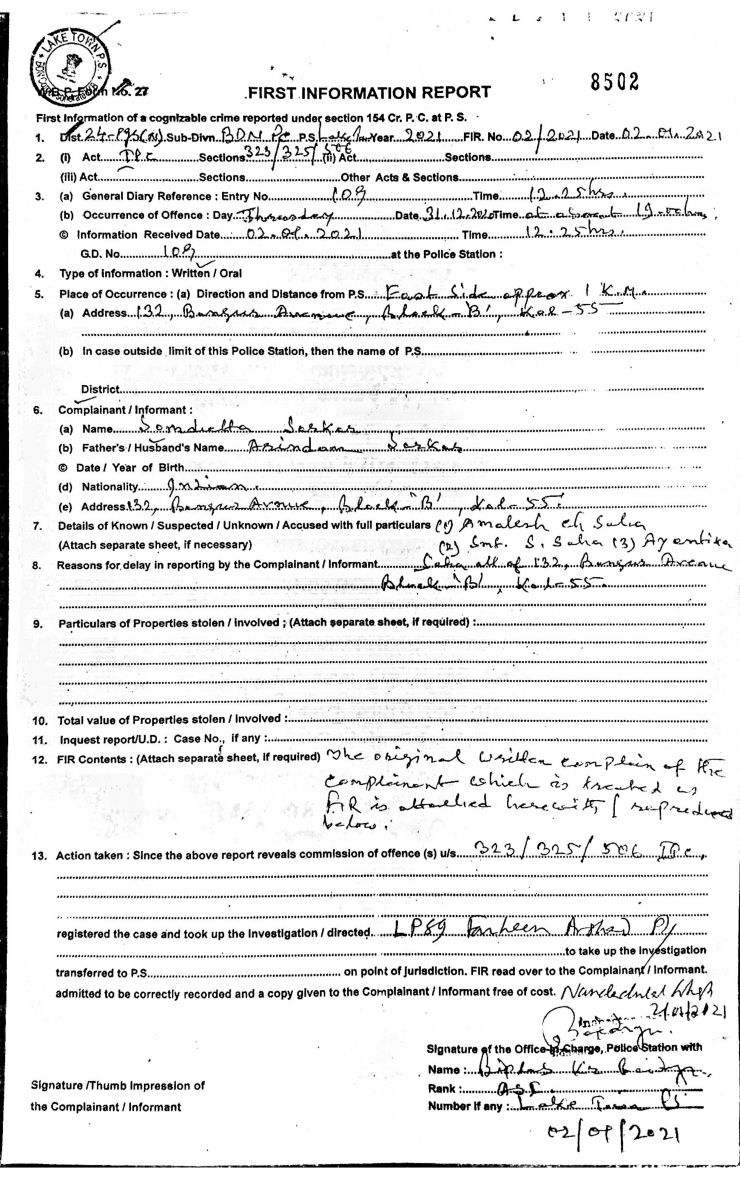 LAKE TOWN P.S.
8502
W.B.P. Form No. 27
FIRST INFORMATION REPORT
First Information of a cognizable crime reported under section 154 Cr. P. C. at P. S.
1. Dist. 24-Pgs(N) Sub-Divn. BDN Pc P.S. Year 2021 FIR. No. 02/2021 Date 02.01.2021
2. (i) Act IPC Sections 323/325/506 (ii) Act Sections
(iii) Act Sections Other Acts & Sections
3. (a) General Diary Reference : Entry No. 109 Time 12.25 hrs.
(b) Occurrence of Offence : Day Thursday Date 31.12.2020 Time at about 19.00 hrs
© Information Received Date 02.01.2021 Time 12.25 hrs.
G.D. No. 109 at the Police Station :
4. Type of Information : Written / Oral
5. Place of Occurrence : (a) Direction and Distance from P.S. East Side approx 1 K.M.
(a) Address 132, Bangur Avenue, Block-'B', Kol-55
(b) In case outside limit of this Police Station, then the name of P.S.
District
6. Complainant / Informant :
(a) Name Somdutta Sarkar
(b) Father's / Husband's Name Arindam Sarkar
© Date / Year of Birth
(d) Nationality Indian
(e) Address 132, Bangur Avnue, Block-"B", Kol-55.
7. Details of Known / Suspected / Unknown / Accused with full particulars (1) Amalesh ch Saha
(Attach separate sheet, if necessary) (2) Smt. S. Saha (3) Ayantika
8. Reasons for delay in reporting by the Complainant / Informant Saha all of 132, Bangur Avenue
Block "B", Kol-55.
9. Particulars of Properties stolen / involved ; (Attach separate sheet, if required) :
10. Total value of Properties stolen / Involved :
11. Inquest report/U.D. : Case No., if any :
12. FIR Contents : (Attach separate sheet, if required) The original written complain of the
complainant which is treated as
FIR is attached herewith / reproduced
below :
13. Action taken : Since the above report reveals commission of offence (s) u/s 323/325/506 IPC,
registered the case and took up the Investigation / directed LPSI Farheen Arshad
to take up the investigation
transferred to P.S. on point of jurisdiction. FIR read over to the Complainant / Informant.
admitted to be correctly recorded and a copy given to the Complainant / Informant free of cost.
2/01/2021
Signature of the Office In Charge, Police Station with
Name : Biplab Kr
Signature /Thumb Impression of
Rank : ASI
the Complainant / Informant
Number if any : Lake Town PS
02/01/2021